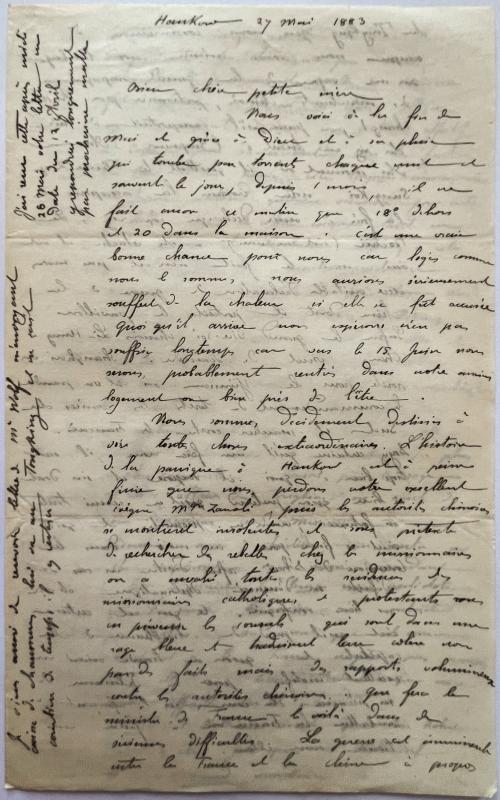 Hankow 27 Mai 1883
Bien chère petite mère
Nous voici à la fin de
Mai et grâce à Dieu et à sa pluie
qui tombe par torrent chaque nuit et
souvent le jour, depuis 1 mois, il ne
fait encore ce matin que 18° dehors
et 20 dans la maison. C'est une vraie
bonne chance pour nous car logés comme
nous le sommes, nous aurions sérieusement
souffert de la chaleur si elle se fût accusée
quoiqu'il arrive nous espérons n'en pas
souffrir longtemps car vers le 15 Juin nous
serons probablement rentrés dans notre ancien
logement ou bien près de l'être.
Nous sommes décidement destinés à
voir toutes choses extraordinaires L'histoire
de la panique à Hankow est à peine
finie que nous perdons notre excellent
évêque Mgr Zanoli, puis les autorités chinoises
se montrent insolentes et sous prétexte
de rechercher des rebelles chez les missionnaires
on a envahi toutes les résidences des
missionnaires catholiques et protestants
les consuls qui sont dans une
rage bleue et traduisent leur colère non
par des faits mais des rapports volumineux
contre les autorités chinoises... que fera le
ministre de France le voilà dans de
sérieuses difficultés. La guerre est imminente
entre la France et la Chine à propos
J'ai reçu cette après midi
28 Mai votre lettre en
date du 12 Avril
y répondrai longuement
par prochaine malle
Je viens aussi de recevoir lettre de Mr
de lui ou au Tongking et